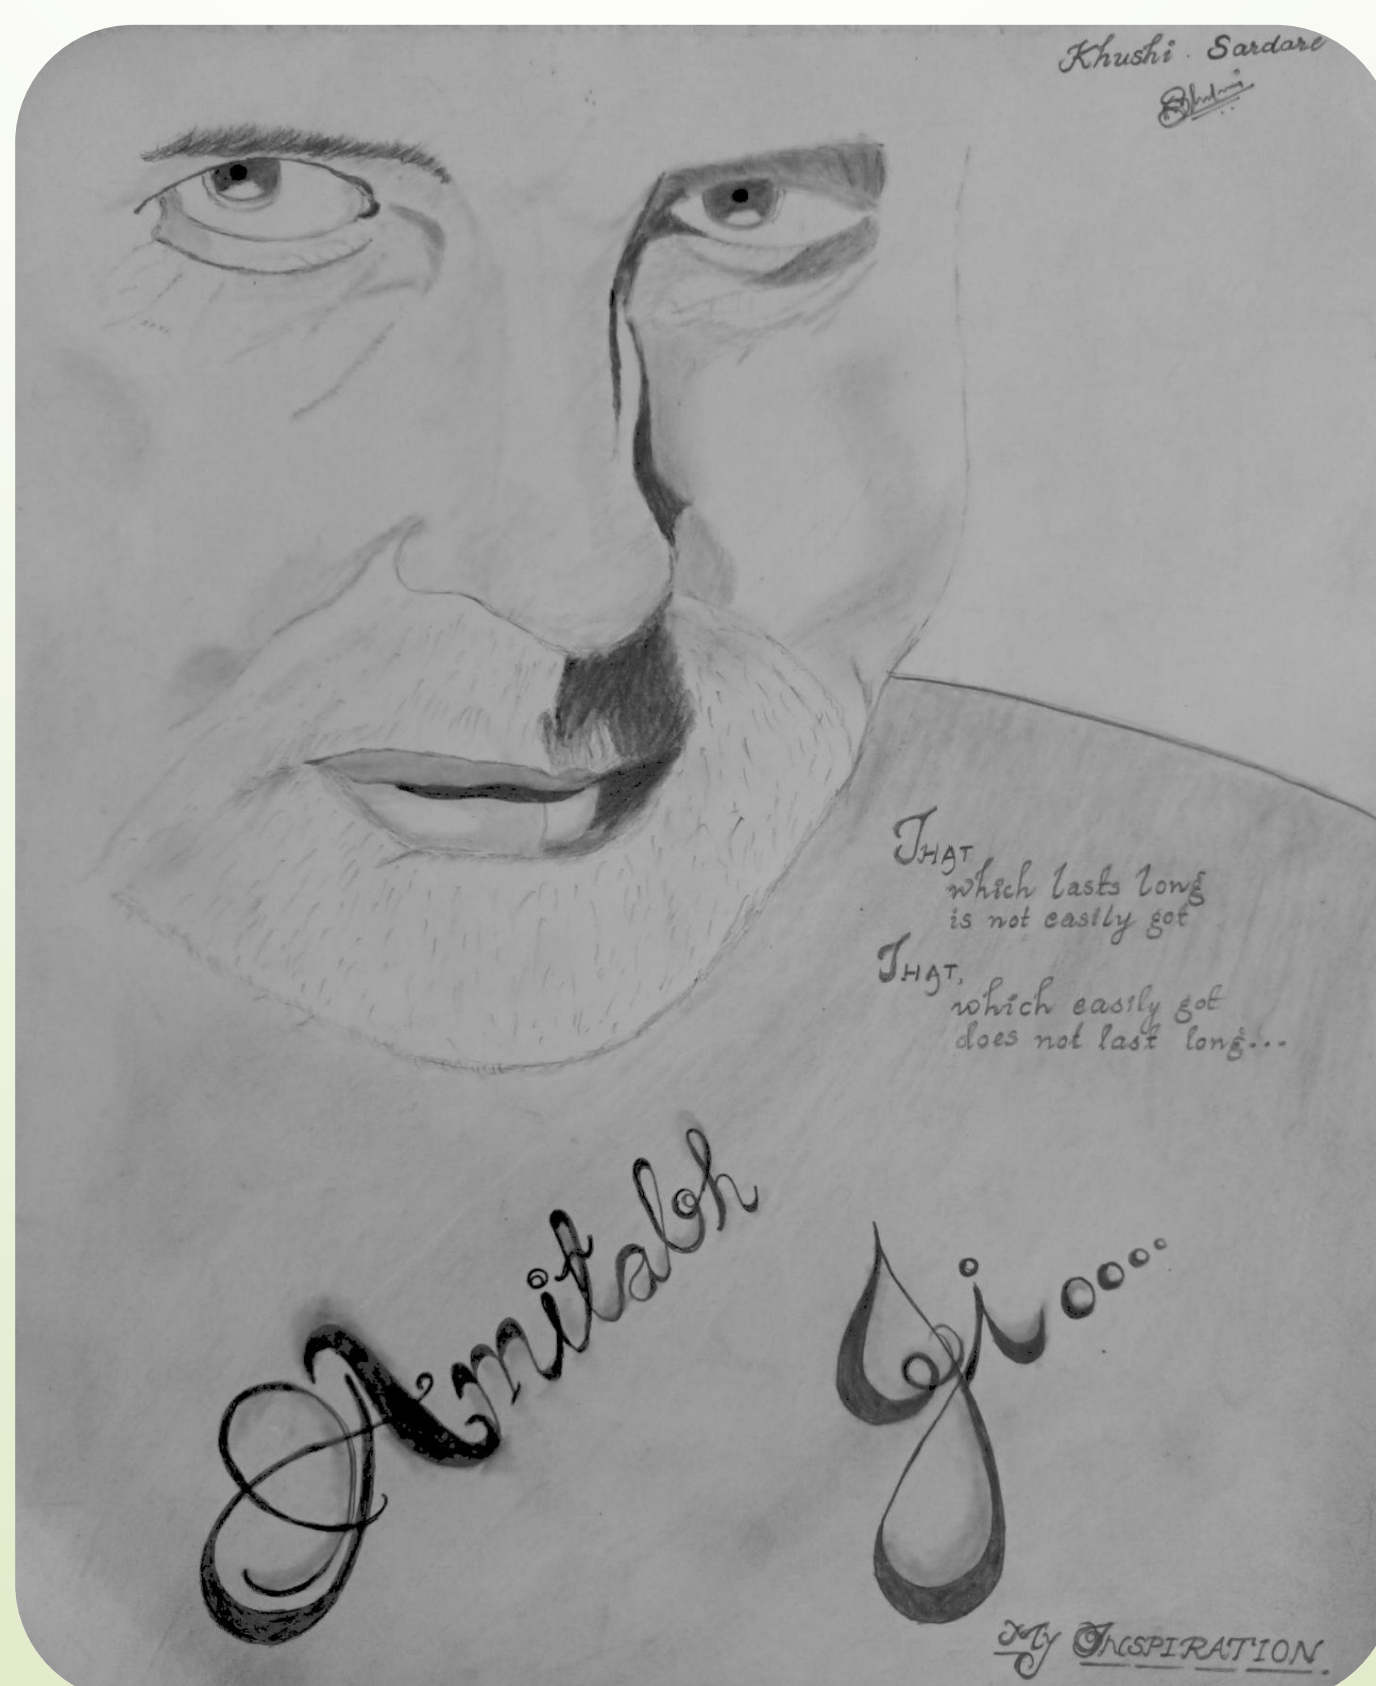 Khushi. Sardare
THAT
which lasts long
is not easily got
THAT,
which easily got
does not last long...
Amitabh
Ji....
My INSPIRATION.